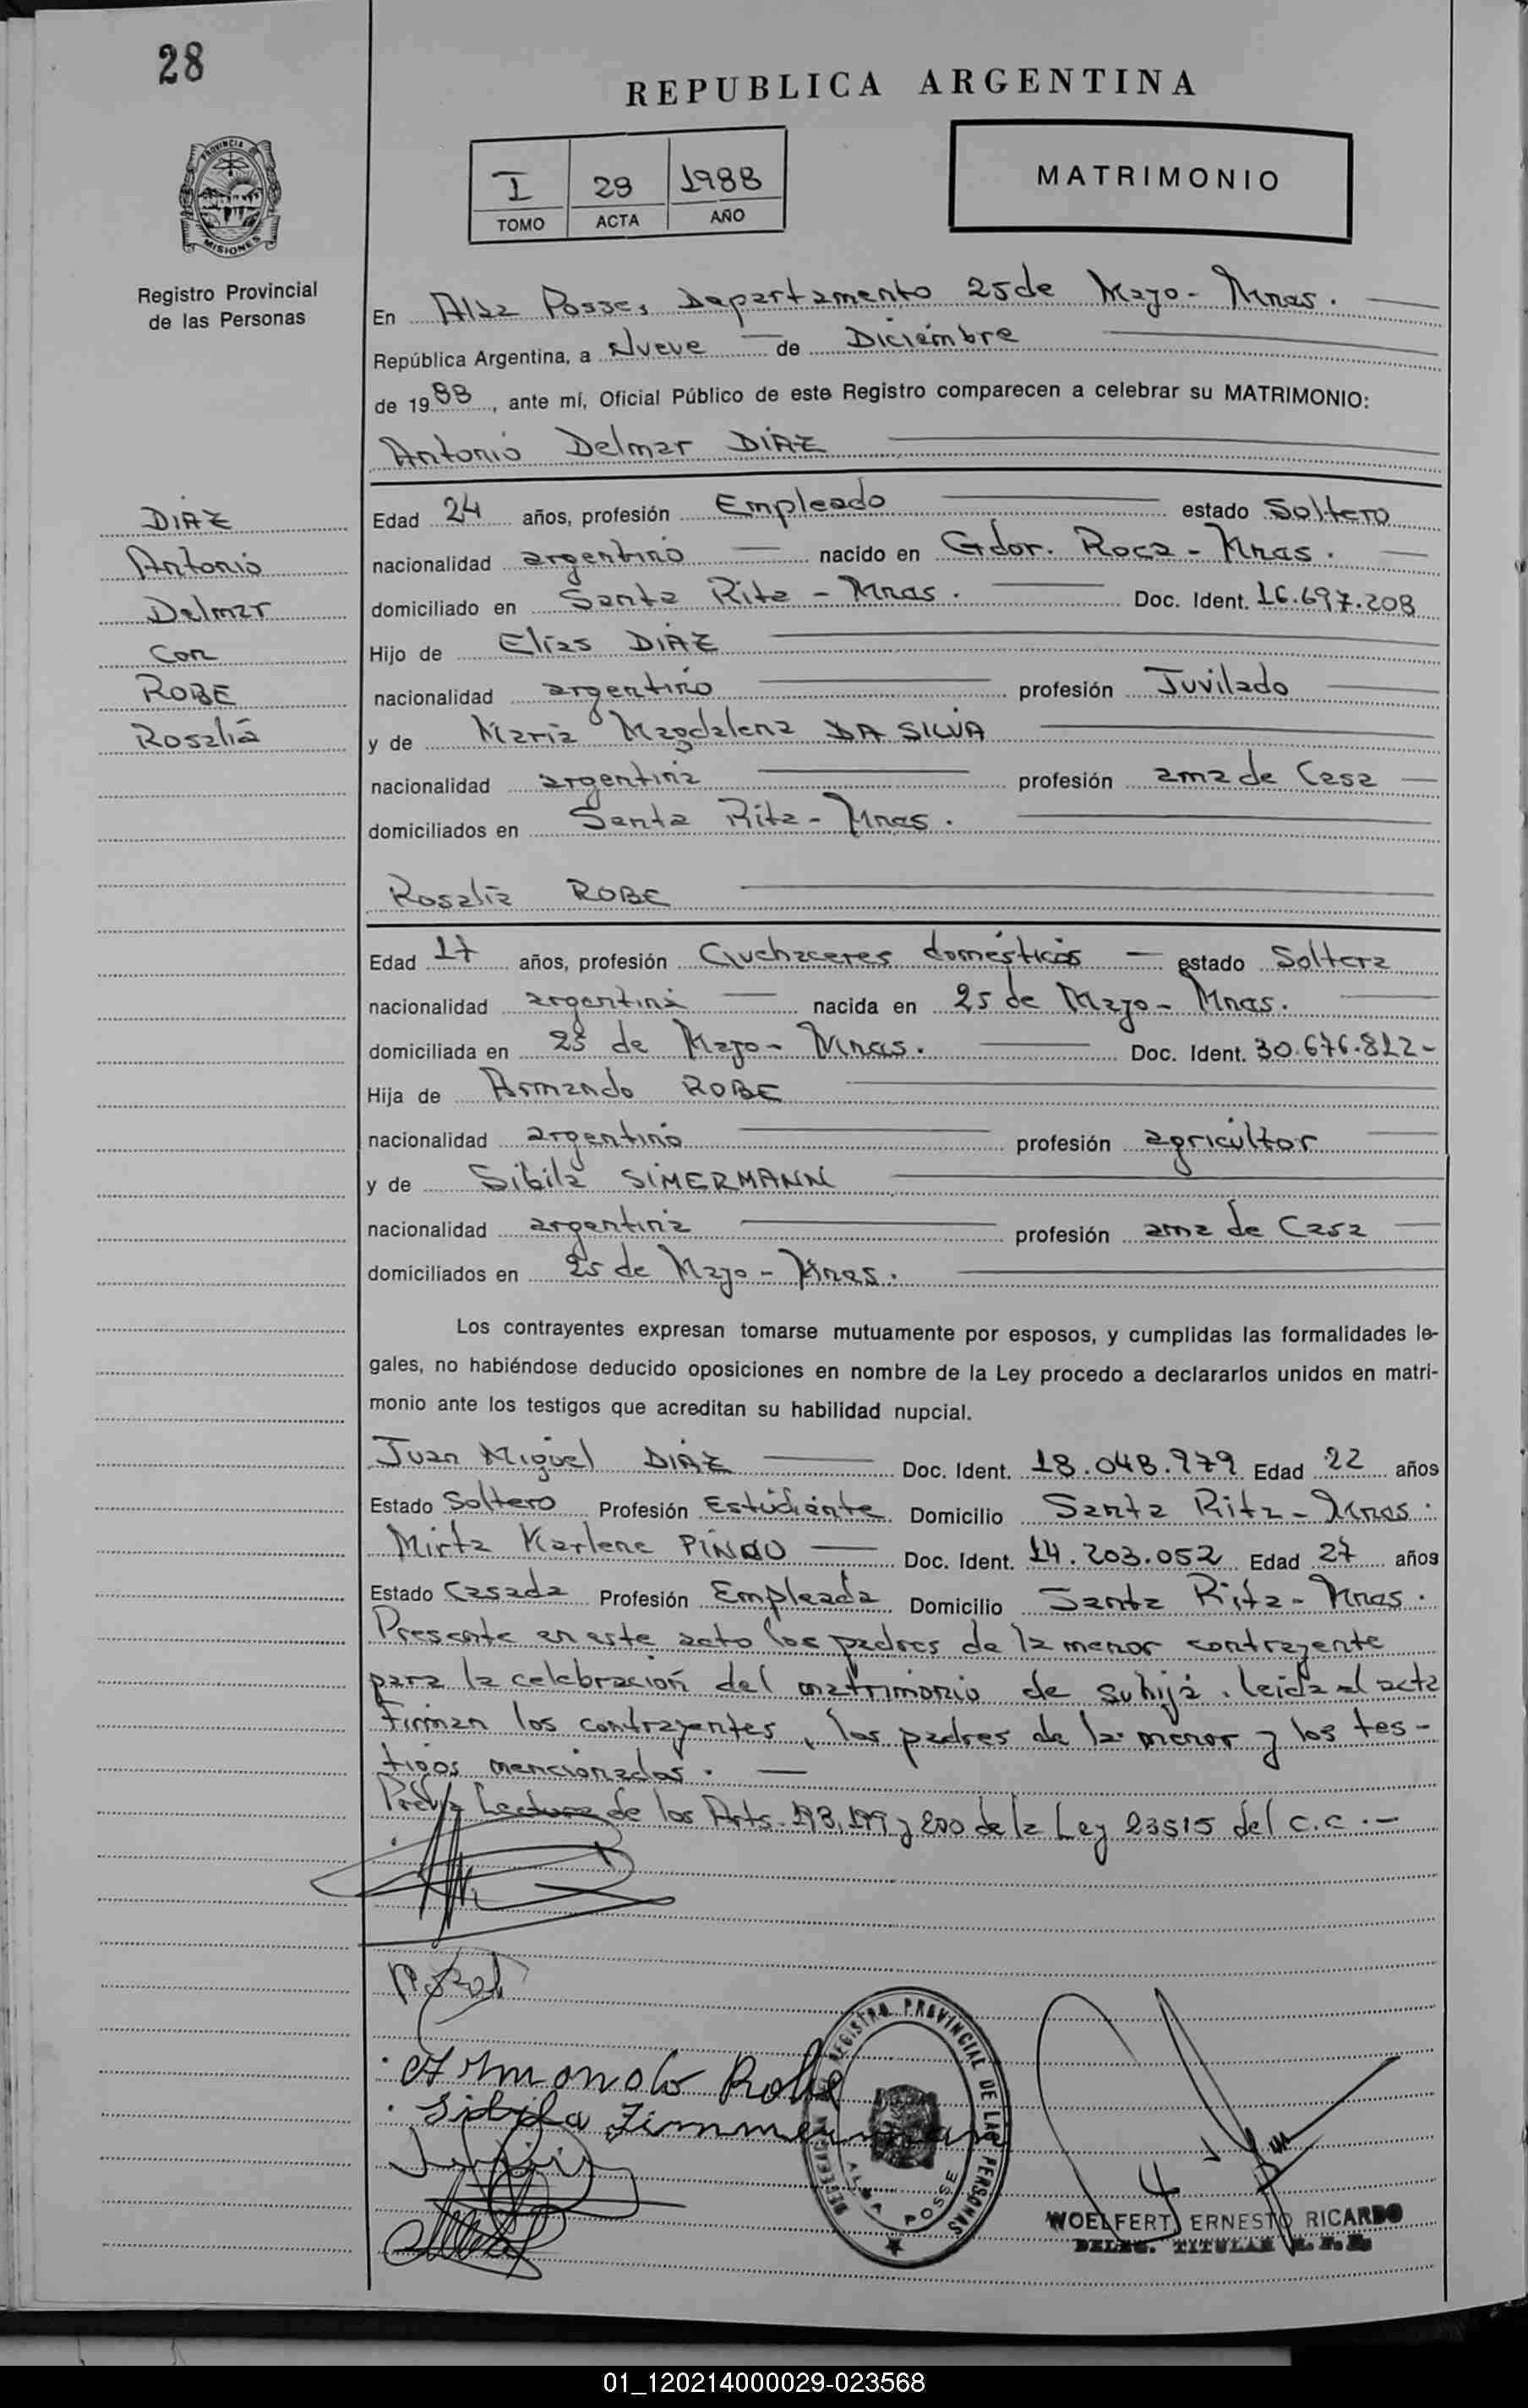 28
REPUBLICA ARGENTINA
I 29 1988
TOMO ACTA AÑO
MATRIMONIO
PROVINCIA DE
MISIONES
Registro Provincial
de las Personas
En Alba Posse, Departamento 25 de Mayo - Mnas.
República Argentina, a Nueve de Diciembre
de 1988, ante mí, Oficial Público de este Registro comparecen a celebrar su MATRIMONIO:
Antonio Delmar DIAZ
DIAZ
Antonio
Delmar
Con
ROBE
Rosalia
Edad 24 años, profesión Empleado estado Soltero
nacionalidad argentino nacido en Gdor. Roca - Mnas.
domiciliado en Santa Rita - Mnas. Doc. Ident. 16.697.208
Hijo de Elias DIAZ
nacionalidad argentino profesión Juvilado
y de Maria Magdalena DA SILVA
nacionalidad argentina profesión ama de Casa
domiciliados en Santa Rita - Mnas.
Rosalia ROBE
Edad 17 años, profesión Quehaceres domésticos estado Soltera
nacionalidad argentina nacida en 25 de Mayo - Mnas.
domiciliada en 25 de Mayo - Mnas. Doc. Ident. 30.676.812-
Hija de Armando ROBE
nacionalidad argentino profesión agricultor
y de Sibila SIMERMANN
nacionalidad argentina profesión ama de Casa
domiciliados en 25 de Mayo - Mnas.
Los contrayentes expresan tomarse mutuamente por esposos, y cumplidas las formalidades le-
gales, no habiéndose deducido oposiciones en nombre de la Ley procedo a declararlos unidos en matri-
monio ante los testigos que acreditan su habilidad nupcial.
Juan Miguel DIAZ Doc. Ident. 18.048.979 Edad 22 años
Estado Soltero Profesión Estudiante Domicilio Santa Rita - Mnas.
Mirta Karlene Doc. Ident. 14.203.052 Edad 27 años
Estado Casada Profesión Empleada Domicilio Santa Rita - Mnas.
Presente en este acto los padres de la menor contrayente
para la celebración del matrimonio de su hija. leida el acta
Firman los contrayentes, los padres de la menor y los tes-
tigos mencionados.
Previa Lectura de los Arts. 198, 199 y 200 de la Ley 23515 del C.C.-
Armando Robe
Sibila Zimmermann
REGISTRO PROVINCIAL DE LAS PERSONAS
ALBA POSSE
WOELFERT, ERNESTO RICARDO
DELEG. TITULAR R. P. P.
01_120214000029-023568